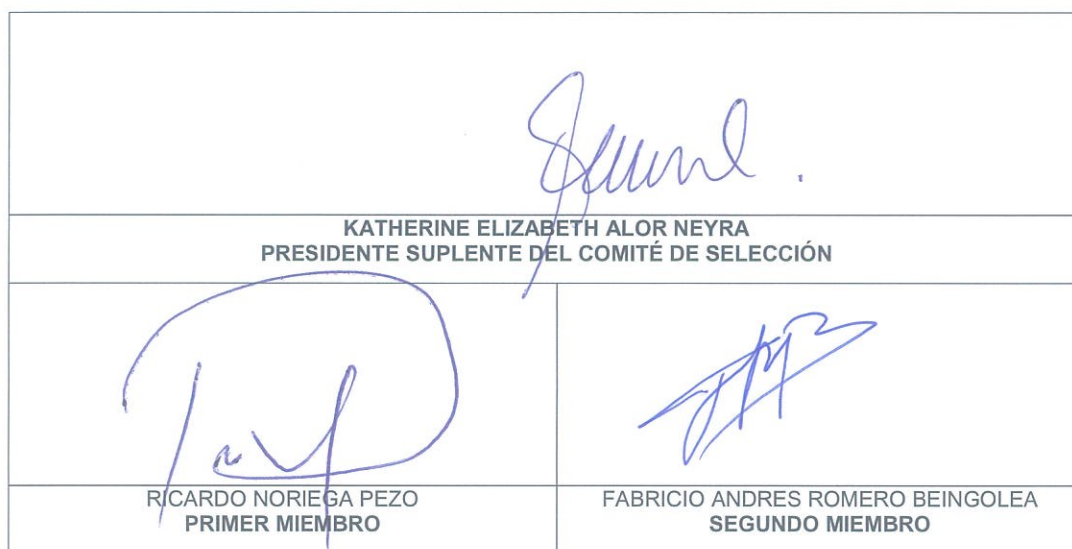 KATHERINE ELIZABETH ALOR NEYRA
PRESIDENTE SUPLENTE DEL COMITÉ DE SELECCIÓN
RICARDO NORIEGA PEZO
PRIMER MIEMBRO
FABRICIO ANDRES ROMERO BEINGOLEA
SEGUNDO MIEMBRO